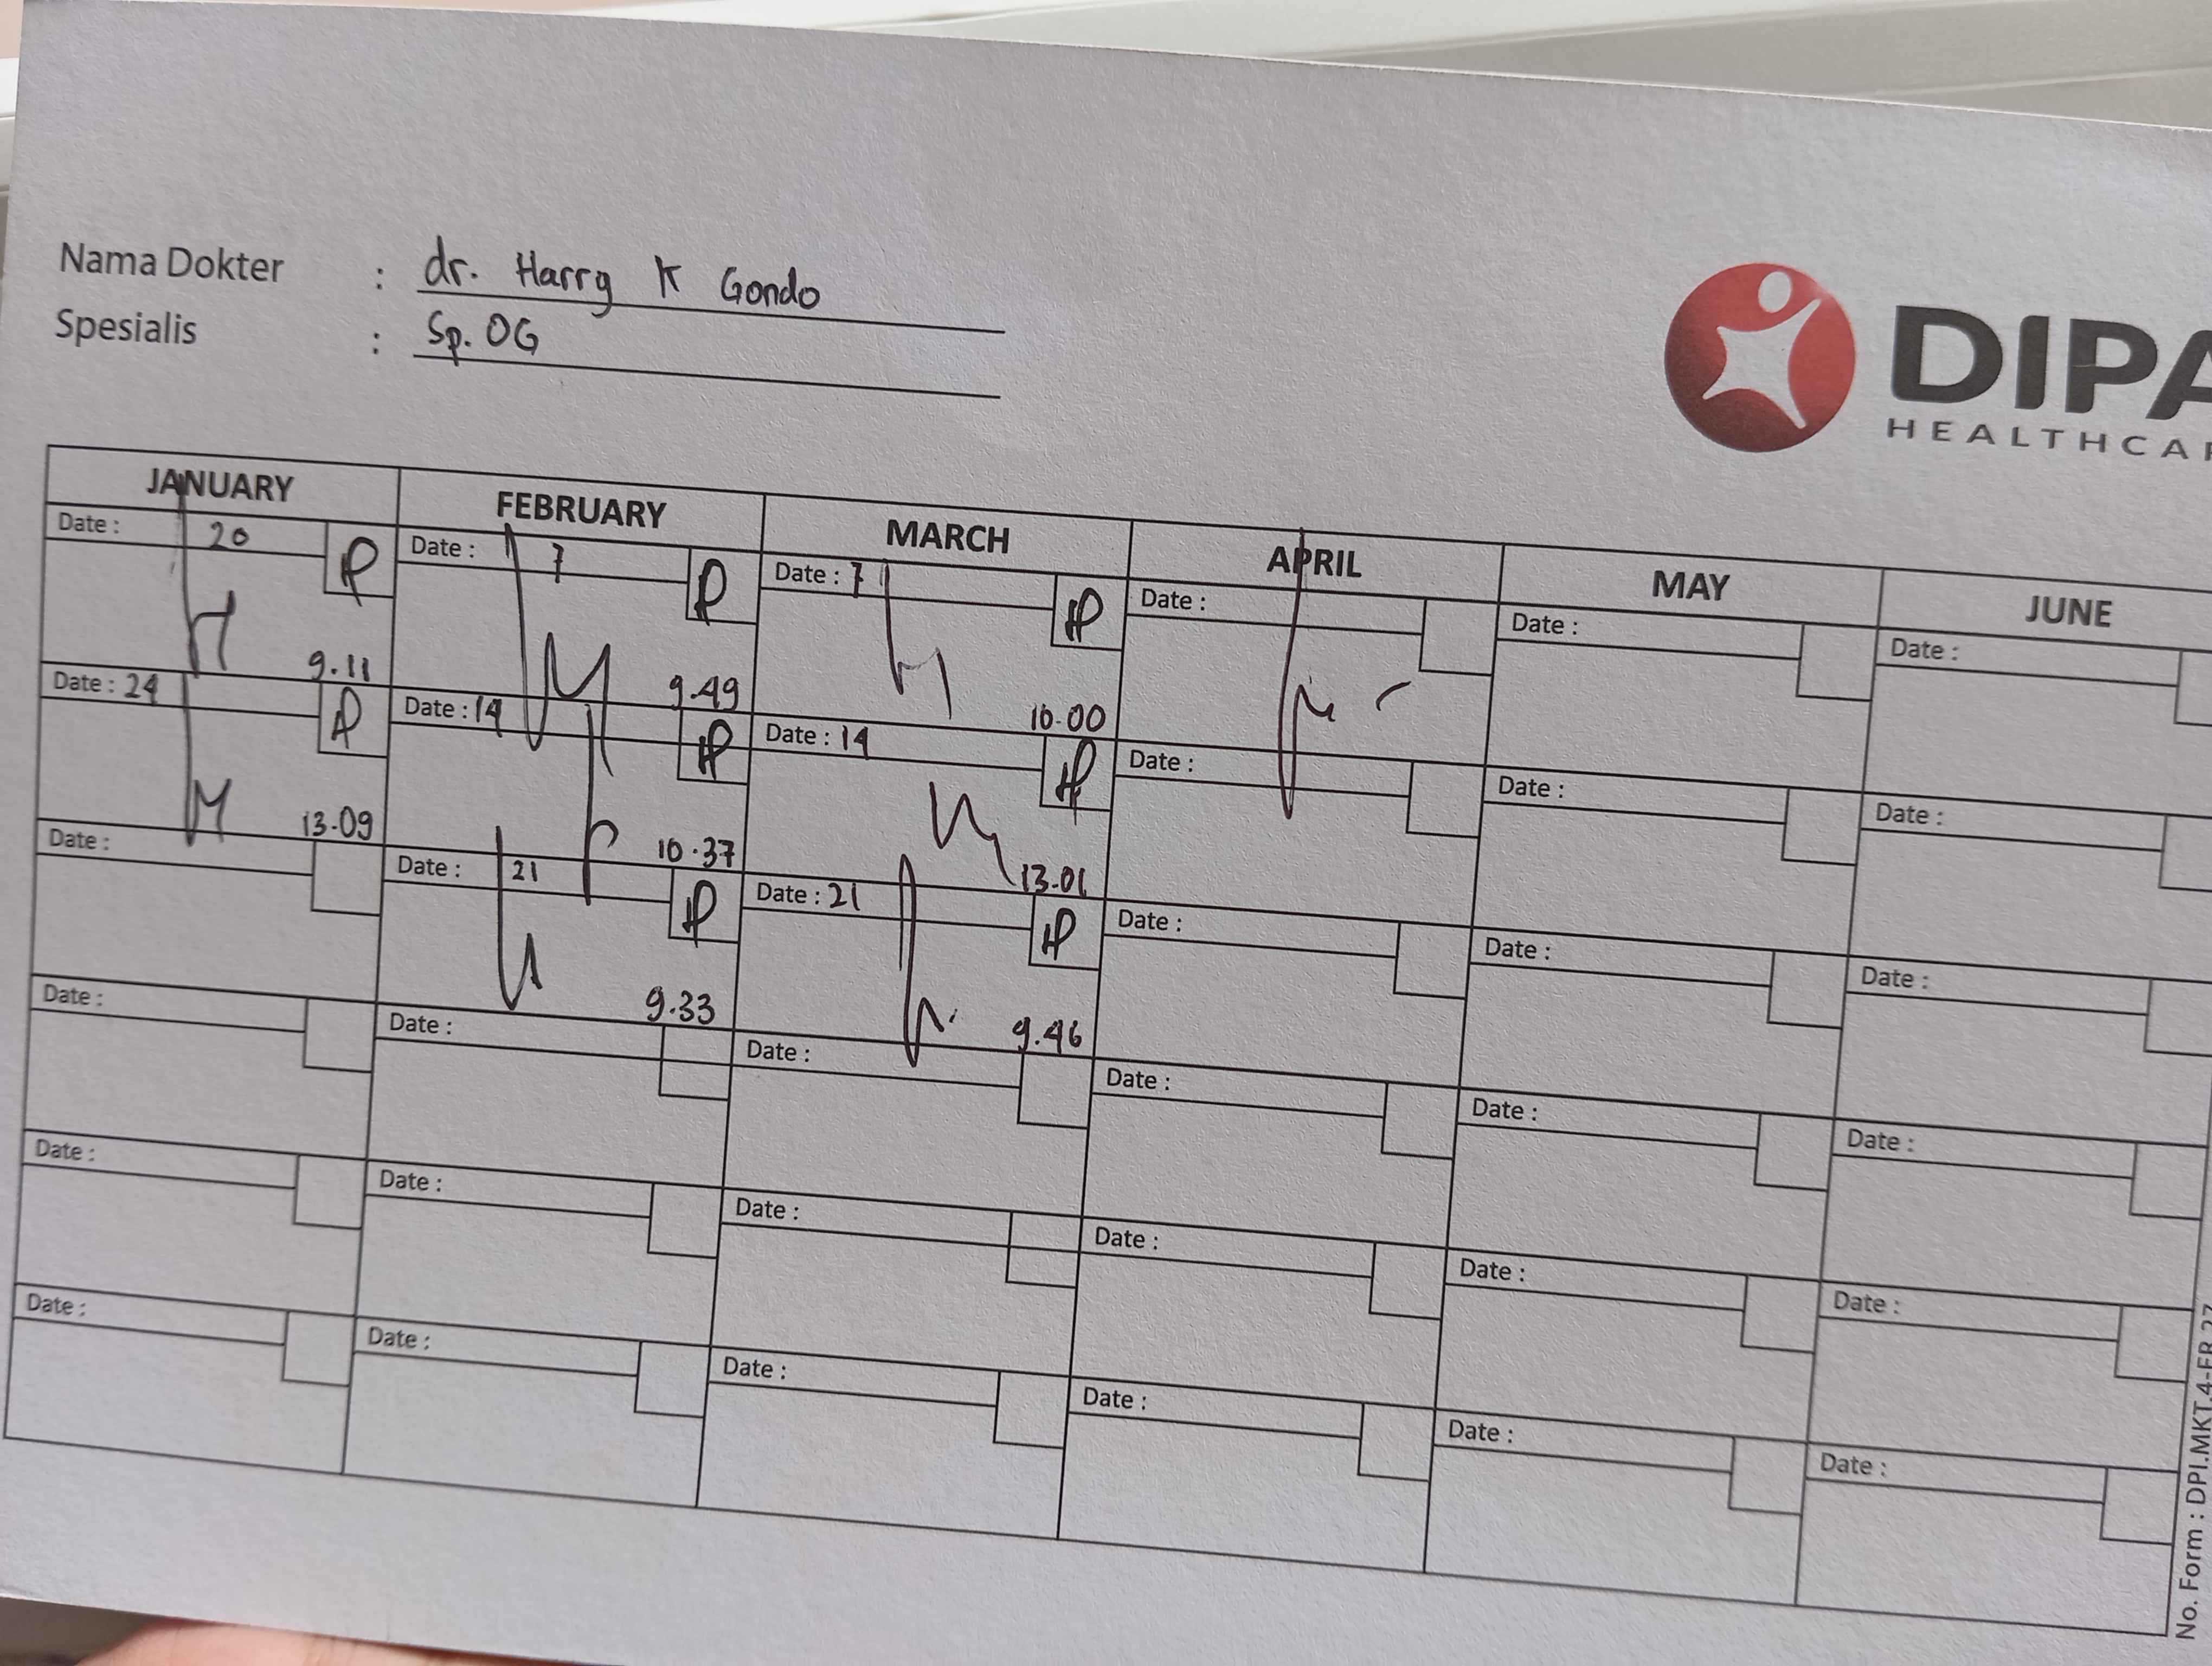 Nama Dokter : dr. Harry K Gondo
Spesialis : Sp. OG
DIPA
HEALTHCAR
JANUARY FEBRUARY MARCH APRIL MAY JUNE
Date : 20 Date : 7 Date : 7 Date : Date : Date :
9.11 9.49 10.00
Date : 24 Date : 14 Date : 14 Date : Date : Date :
13.09 10.37 13.01
Date : Date : 21 Date : 21 Date : Date : Date :
9.33 9.46
Date : Date : Date : Date : Date : Date :
Date : Date : Date : Date : Date : Date :
Date : Date : Date : Date : Date : Date :
No. Form : DPI.MKT.4-FR.27